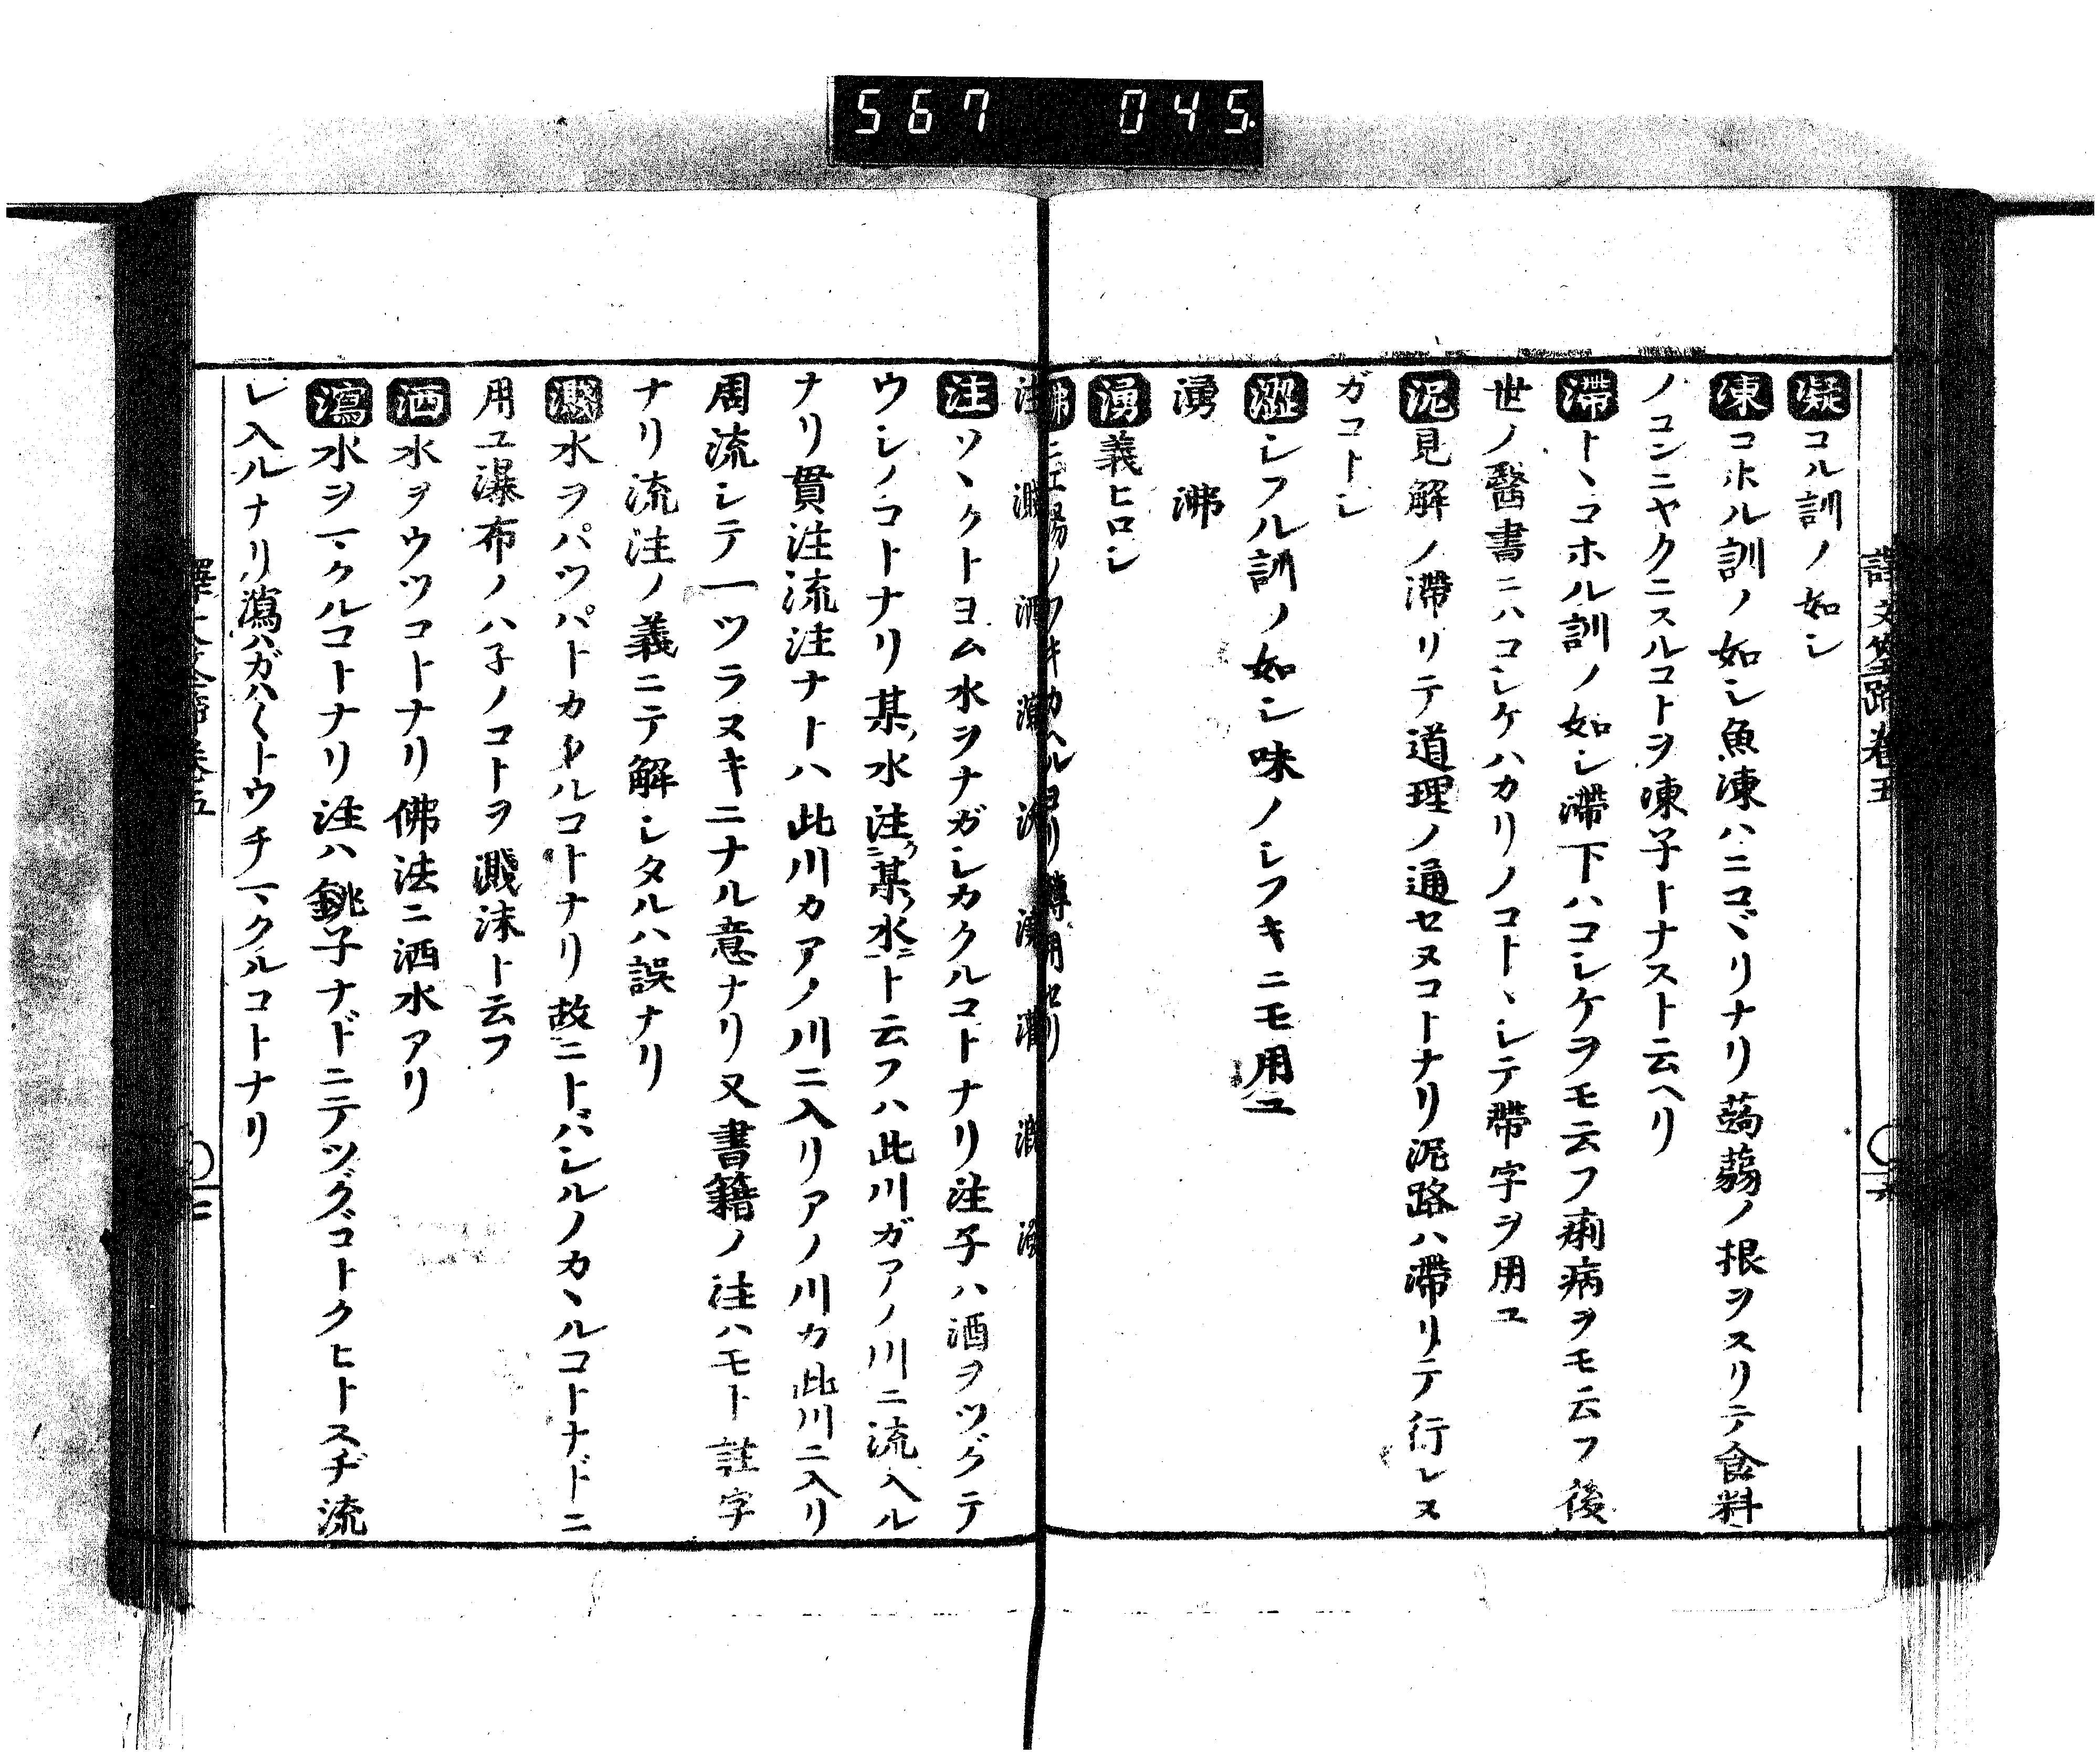 567 045.
譯文筌蹄卷五
凝コル訓ノ如シ
凍コホル訓ノ如シ魚凍ハニコヾリナリ蒟蒻ノ根ヲスリテ食料
ノコンニヤクニスルコトヲ凍子トナスト云ヘリ
滯トヽコホル訓ノ如シ滯下ハコシケヲモ云フ痢病ヲモ云フ後
世ノ醫書ニハコシケハカリノコトヽシテ帶字ヲ用ユ
泥見解ノ滯リテ道理ノ通セヌコトナリ泥路ハ滯リテ行レヌ
ガコトシ
澀シフル訓ノ如シ味ノシフキニモ用ユ
湧 沸
湧義ヒロシ
沸ニエ湯ノワキカヘルヨリ轉用セリ
注 濺 洒 瀉
注ソヽクトヨム水ヲナガシカクルコトナリ注子ハ酒ヲツグテ
ウシノコトナリ某ノ水注クニ某ノ水ニト云フハ此川ガアノ川ニ流入ル
ナリ貫注流注ナトハ此川カアノ川ニ入リアノ川カ此川ニ入リ
周流シテ一ツラヌキニナル意ナリ又書籍ノ注ハモト註字
ナリ流注ノ義ニテ解シタルハ誤ナリ
濺水ヲパツパトカヤルコトナリ故ニトバシルノカヽルコトナドニ
用ユ瀑布ノハ子ノコトヲ濺沫ト云フ
洒水ヲウツコトナリ佛法ニ洒水アリ
瀉水ヲマクルコトナリ注ハ銚子ナドニテツグゴトクヒトスヂ流
レ入ルナリ瀉ハガハ〱トウチマクルコトナリ
譯文筌蹄卷五